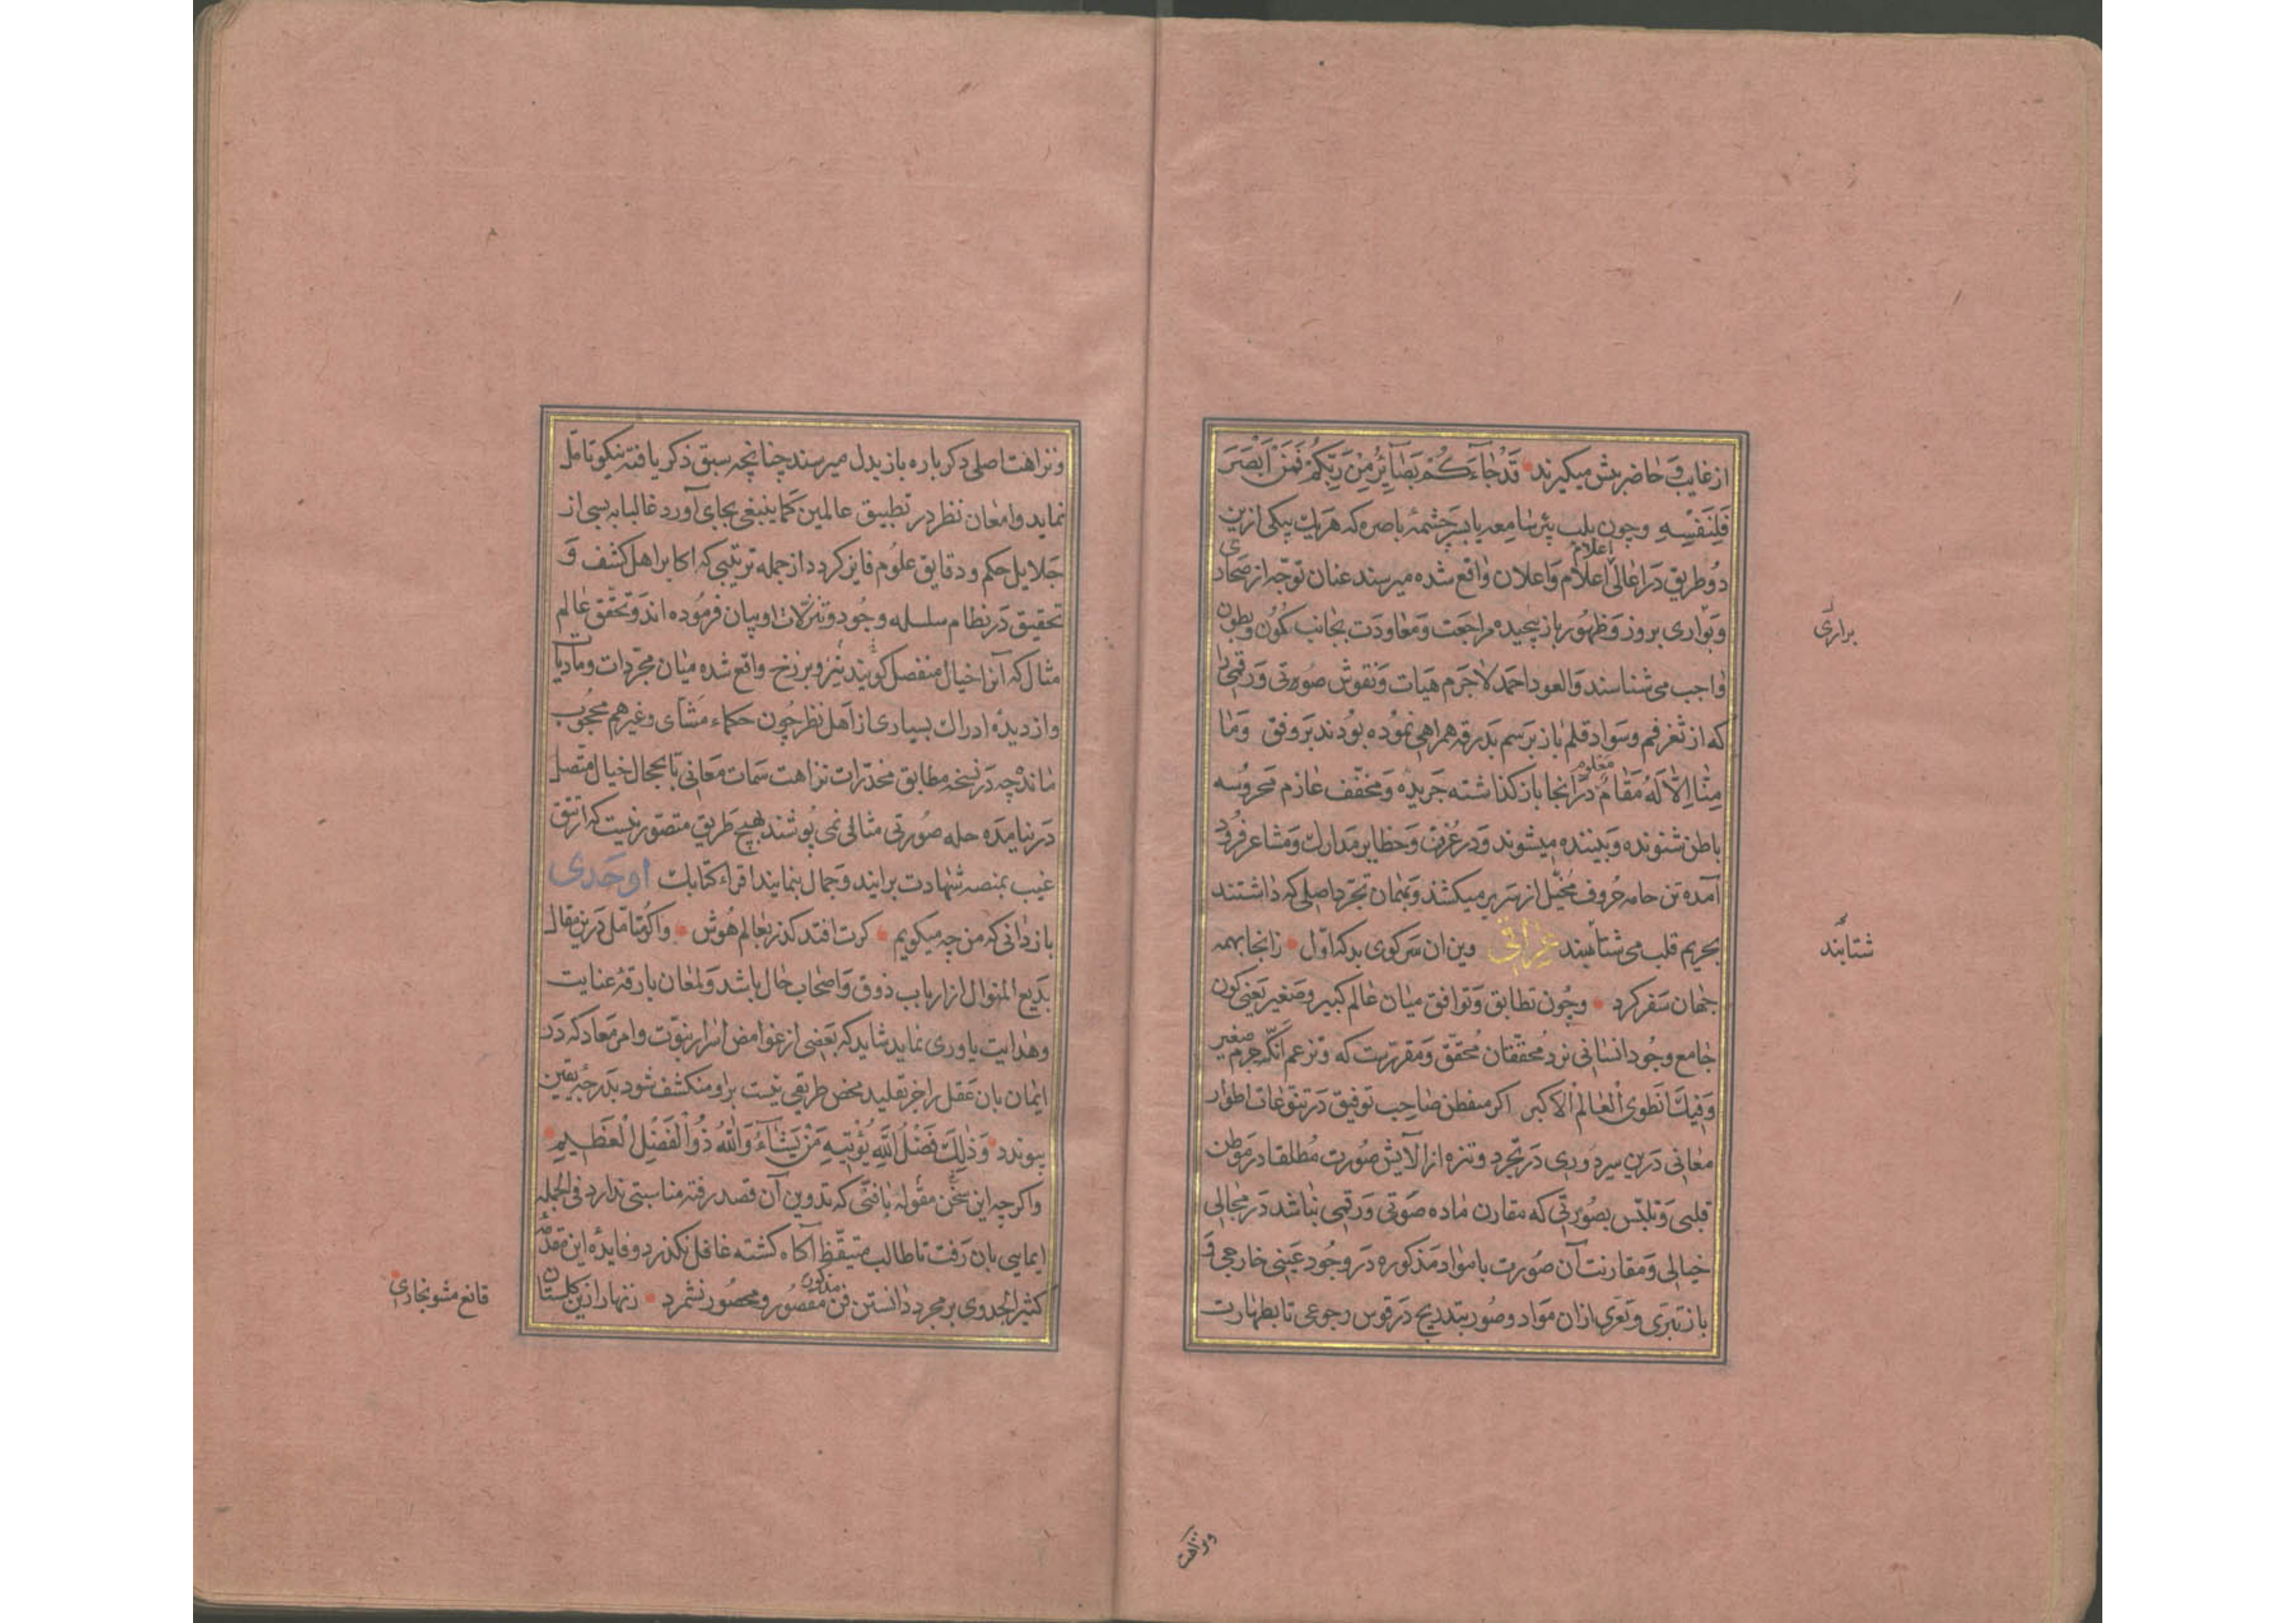 از غایب و حاضر بهش میکیرند قَدْ جَاءَكُمْ بَصَائِرُ مِنْ رَبِّكُمْ فَمَنْ أَبْصَرَ
فَلِنَفْسِهِ وچون بلب بئر سامعه یا بسرچشمهٔ باصره که هریك بیکی ازین
دو طریق در اعالی اعلام و اعلان واقع شده میرسند عنان توجّه از صحاری
اعلام
وبواری بروز وظهور باز پیچیده مراجعت ومعاودت بجانب کمون وبطون
براری
واجب می شناسند والعود احمد لاجرم هیات ونقوش صوتی ورقمی را
که از ثغر فم وسواد قلم باز برسم بدرقه همراهی نموده بودند بر وفق وَمَا
مِنَّا إِلَّا لَهُ مَقَامٌ در انجا باز کذاشته جریده ومخفّف عازم محروسه
معلوم
باطن شنونده وبیننده میشوند ودر غرف وحظایر مدارك ومشاعر فرود
آمده تن جامه حروف مخیّل از سر بر میکشند وبهمان تجرّد اصلی که داشتند
بحریم قلب می شتابند عراقی وین ان سر کوی بد که اوّل زانجا بهمه
شتابند
جهان سفر کرد وچون تطابق وتوافق میان عالم کبیر وصغیر یعنی کون
جامع وجود انسانی نزد محققان محقّق ومقررست که وتزعم انّك جرم صغیر
وَفِيكَ انْطَوَى الْعَالَمُ الْأَكْبَر اکر متفطن صاحب توفیق در تنوّعات اطوار
معانی درین سیر دوری در تجرد وتنزه از آلایش صورت مطلقا در موطن
قلبی وتلبّس بصورتی که مقارن ماده صوتی ورقمی نباشد در مجالی
خیالی ومقارنت آن صورت با مواد مذکوره در وجود عینی خارجی و
باز تبری وتعری ازان مواد وصور بتدریج در قوس رجوعی تا بطهارت
ونزاهت
ونزاهت اصلی دکر باره باز بدل میرسند چنانچه سبق ذکر یافته نیکو تامّل
نماید وامعان نظر در تطبیق عالمین کما ینبغی بجای آورد غالبا به بسی از
جلایل حکم ودقایق علوم فایز کردد از جمله ترتیبی که اکابر اهل کشف و
تحقیق در نظام سلسله وجود وتنزّلات او بیان فرموده اند وتحقّق عالم
مثال که آنرا خیال منفصل کویند نیز وبرزخ واقع شده میان مجرّدات ومادیات
واز دیدهٔ ادراك بسیاری از اهل نظر چون حکماء مشّای وغیرهم محجوب
مانده چه در نسخه مطابق مخدّرات نزاهت سمات معانی تا بمجال خیال متّصل
در نیامده حله صورتی مثالی نمی پوشند بهیچ طریق متصوّر نیست که از تتق
غیب بمنصه شهادت برایند وجمال بنمایند اقراء کتابك اوحدی
باز دانی که من چه میکویم کرت افتد کذر بعالم هوش واکر متامّل درین مقال
بدیع المنوال از ارباب ذوق واصحاب حال باشد ولمعان بارقهٔ عنایت
وهدایت یاوری نماید شاید که بعضی از غوامض اسرار نبوّت وامر معاد که در
ایمان بان عقل را جز تقلید محض طریقی نیست بر او منکشف شود بدرجه یقین
پیوندد وَذَلِكَ فَضْلُ اللَّهِ يُؤْتِيهِ مَنْ يَشَاءُ وَاللَّهُ ذُو الْفَضْلِ الْعَظِيمِ
واکرچه این سخن مقوله یا فنّی که تدوین آن قصد رفته مناسبتی ندارد فی الجمله
ایمایی بان رفت تا طالب متیقّظ آکاه کشته غافل نکذرد وفایدهٔ این مقدّمهٔ
کثیر الجدوی بر مجرد دانستن فن مقصور ومحصور نشمرد زنهار ازین کلستان
مذکور
قانع مشو بخاری